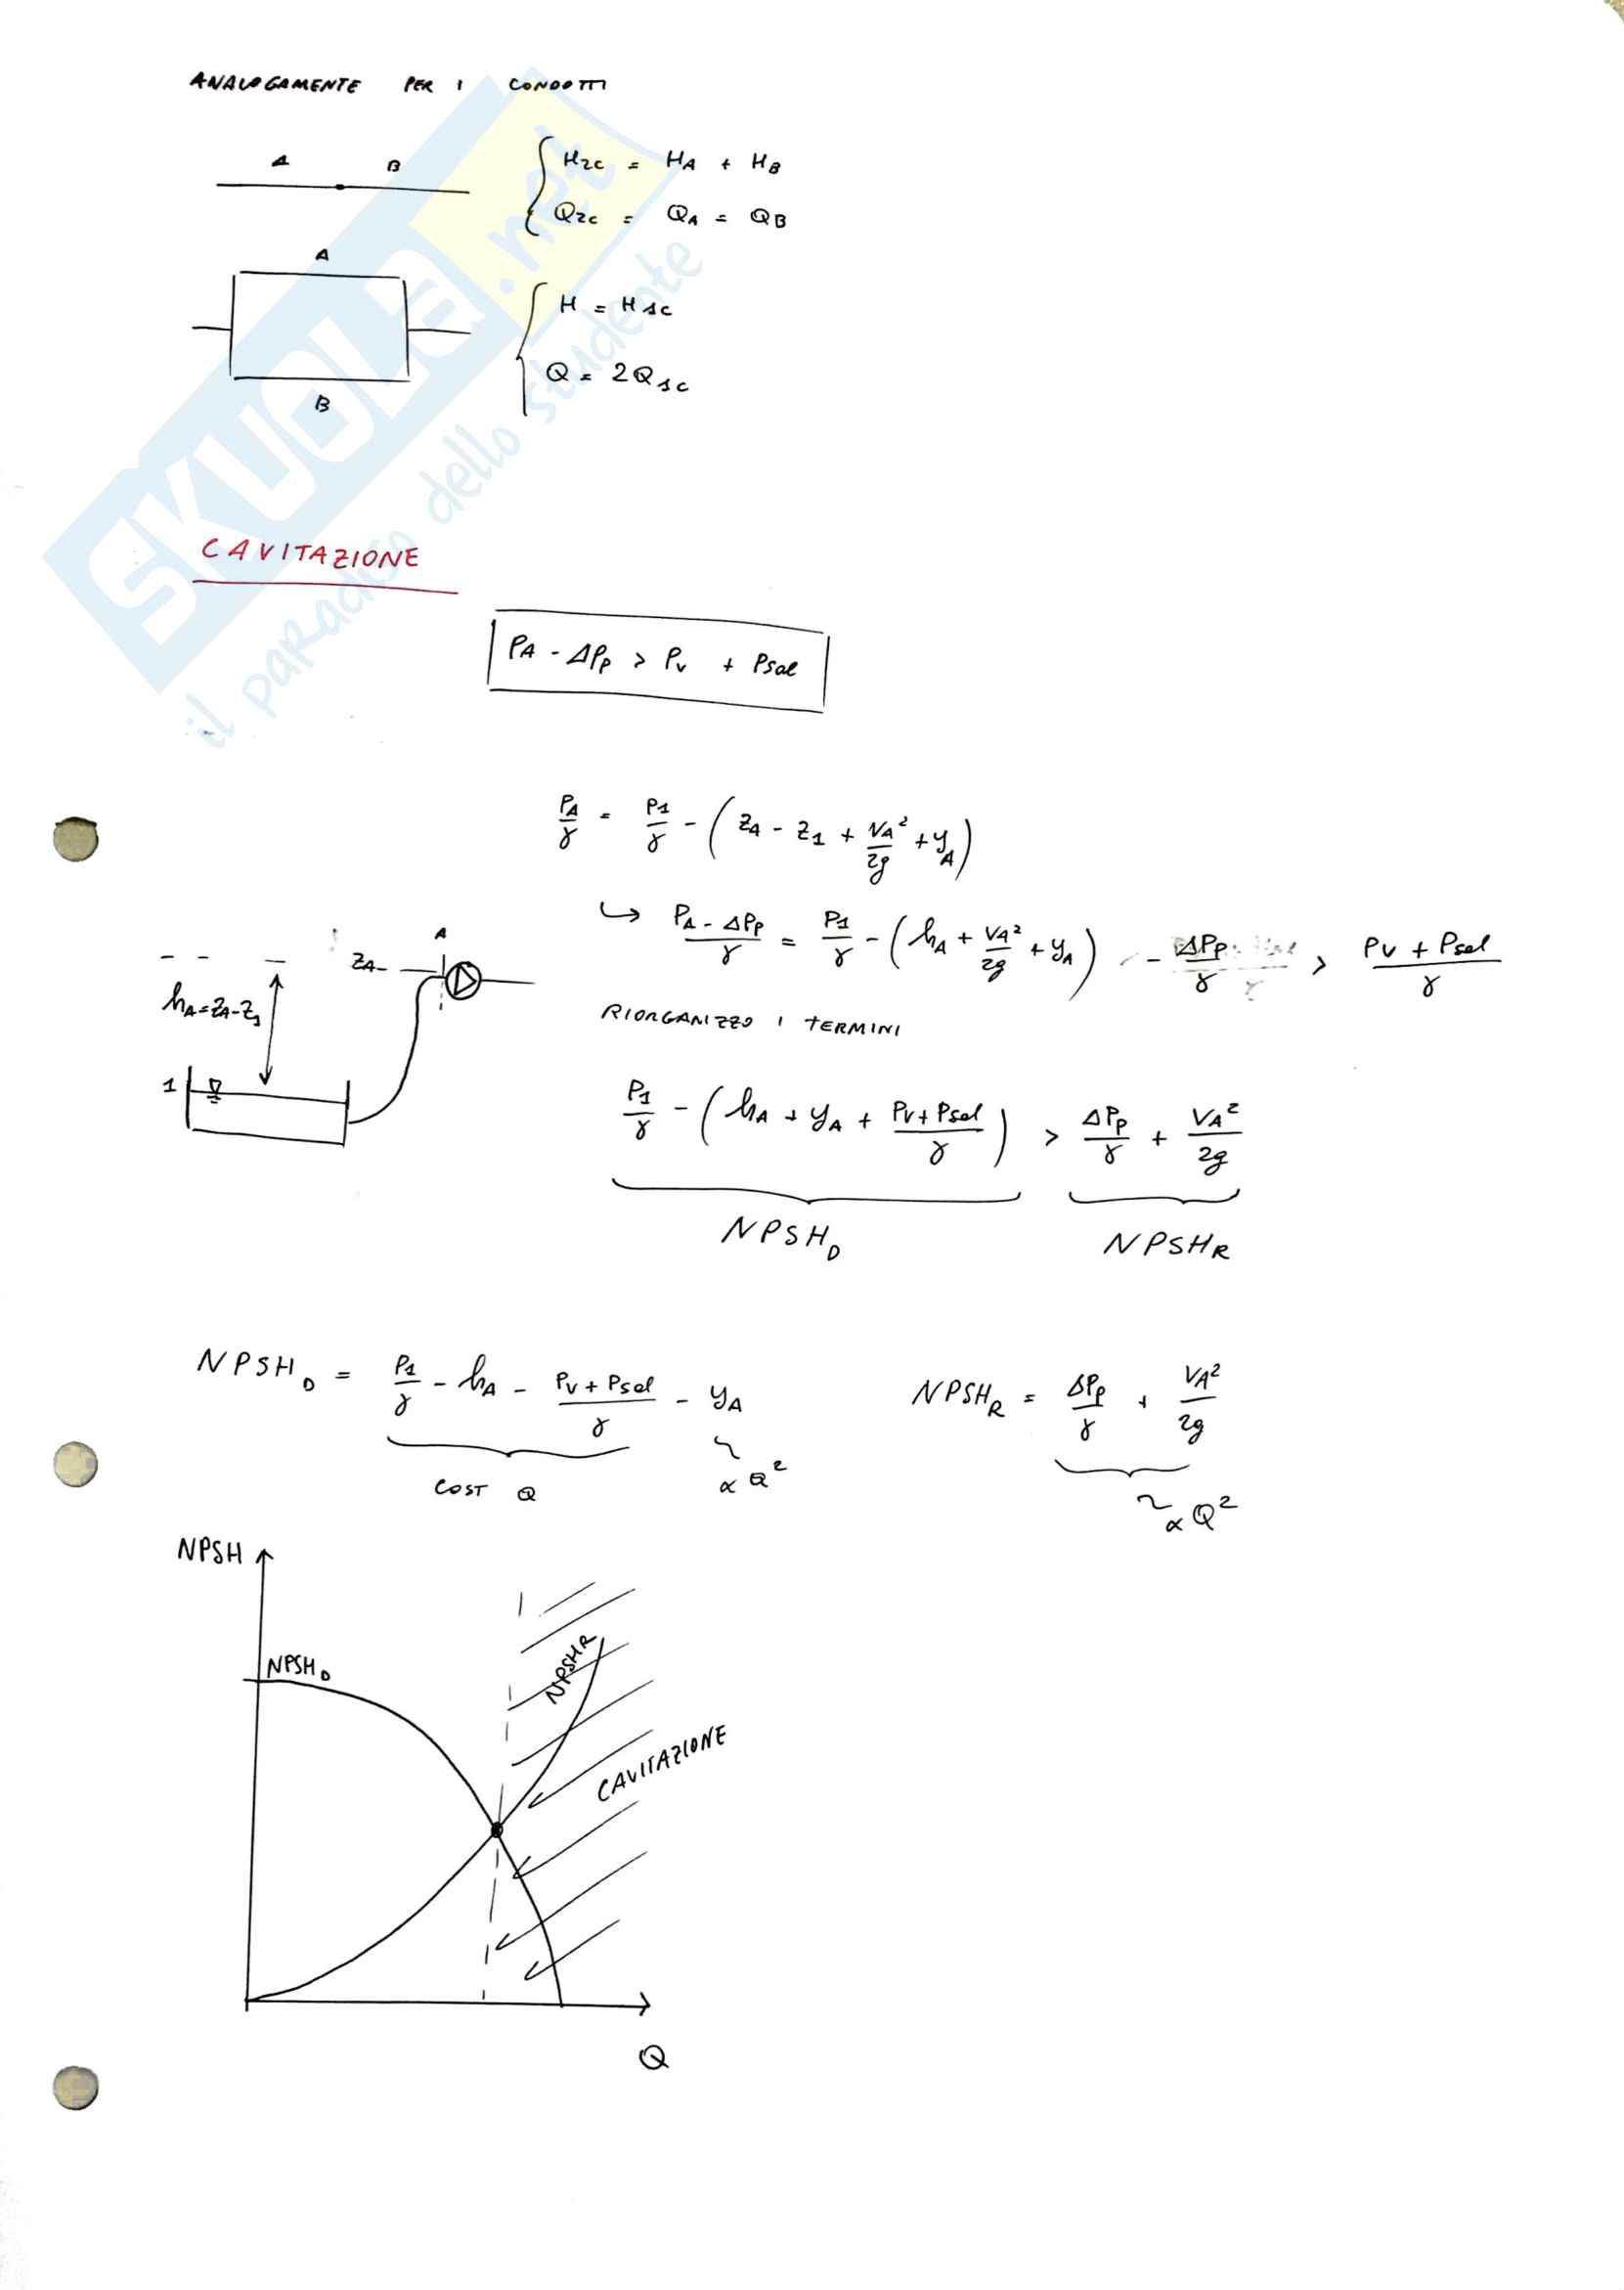 ANALOGAMENTE PER I CONDOTTI
A B
H2C = HA + HB
Q2C = QA = QB
A
H = H1C
Q = 2Q1C
B
SKUOLA.net
il paradiso dello studente
CAVITAZIONE
PA - ΔPp > Pv + Psol
PA/γ = P1/γ - (ZA - Z1 + VA²/2g + yA)
↪ (PA - ΔPp)/γ = P1/γ - (hA + VA²/2g + yA) - ΔPp/γ > (Pv + Psol)/γ
A
ZA
hA=ZA-Z1
1
RIORGANIZZO I TERMINI
P1/γ - (hA + yA + (Pv+Psol)/γ) > ΔPp/γ + VA²/2g
NPSHD NPSHR
NPSHD = P1/γ - hA - (Pv + Psol)/γ - yA
COST Q ∝ Q²
NPSHR = ΔPp/γ + VA²/2g
∝ Q²
NPSH
NPSHD
NPSHR
CAVITAZIONE
Q